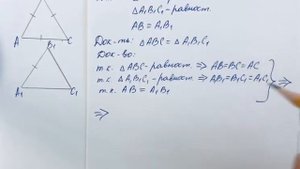 △A₁B₁C₁ - равност.
AB = A₁B₁
Док-ть: △ABC = △A₁B₁C₁
Док-во:
т.к. △ABC - равност. ⇒ AB=BC=AC
т.к. △A₁B₁C₁ - равност. ⇒ AB₁=B₁C₁=A₁C₁
т.к. AB = A₁B₁
⇒
⇒
A
C
B₁
A₁
C₁